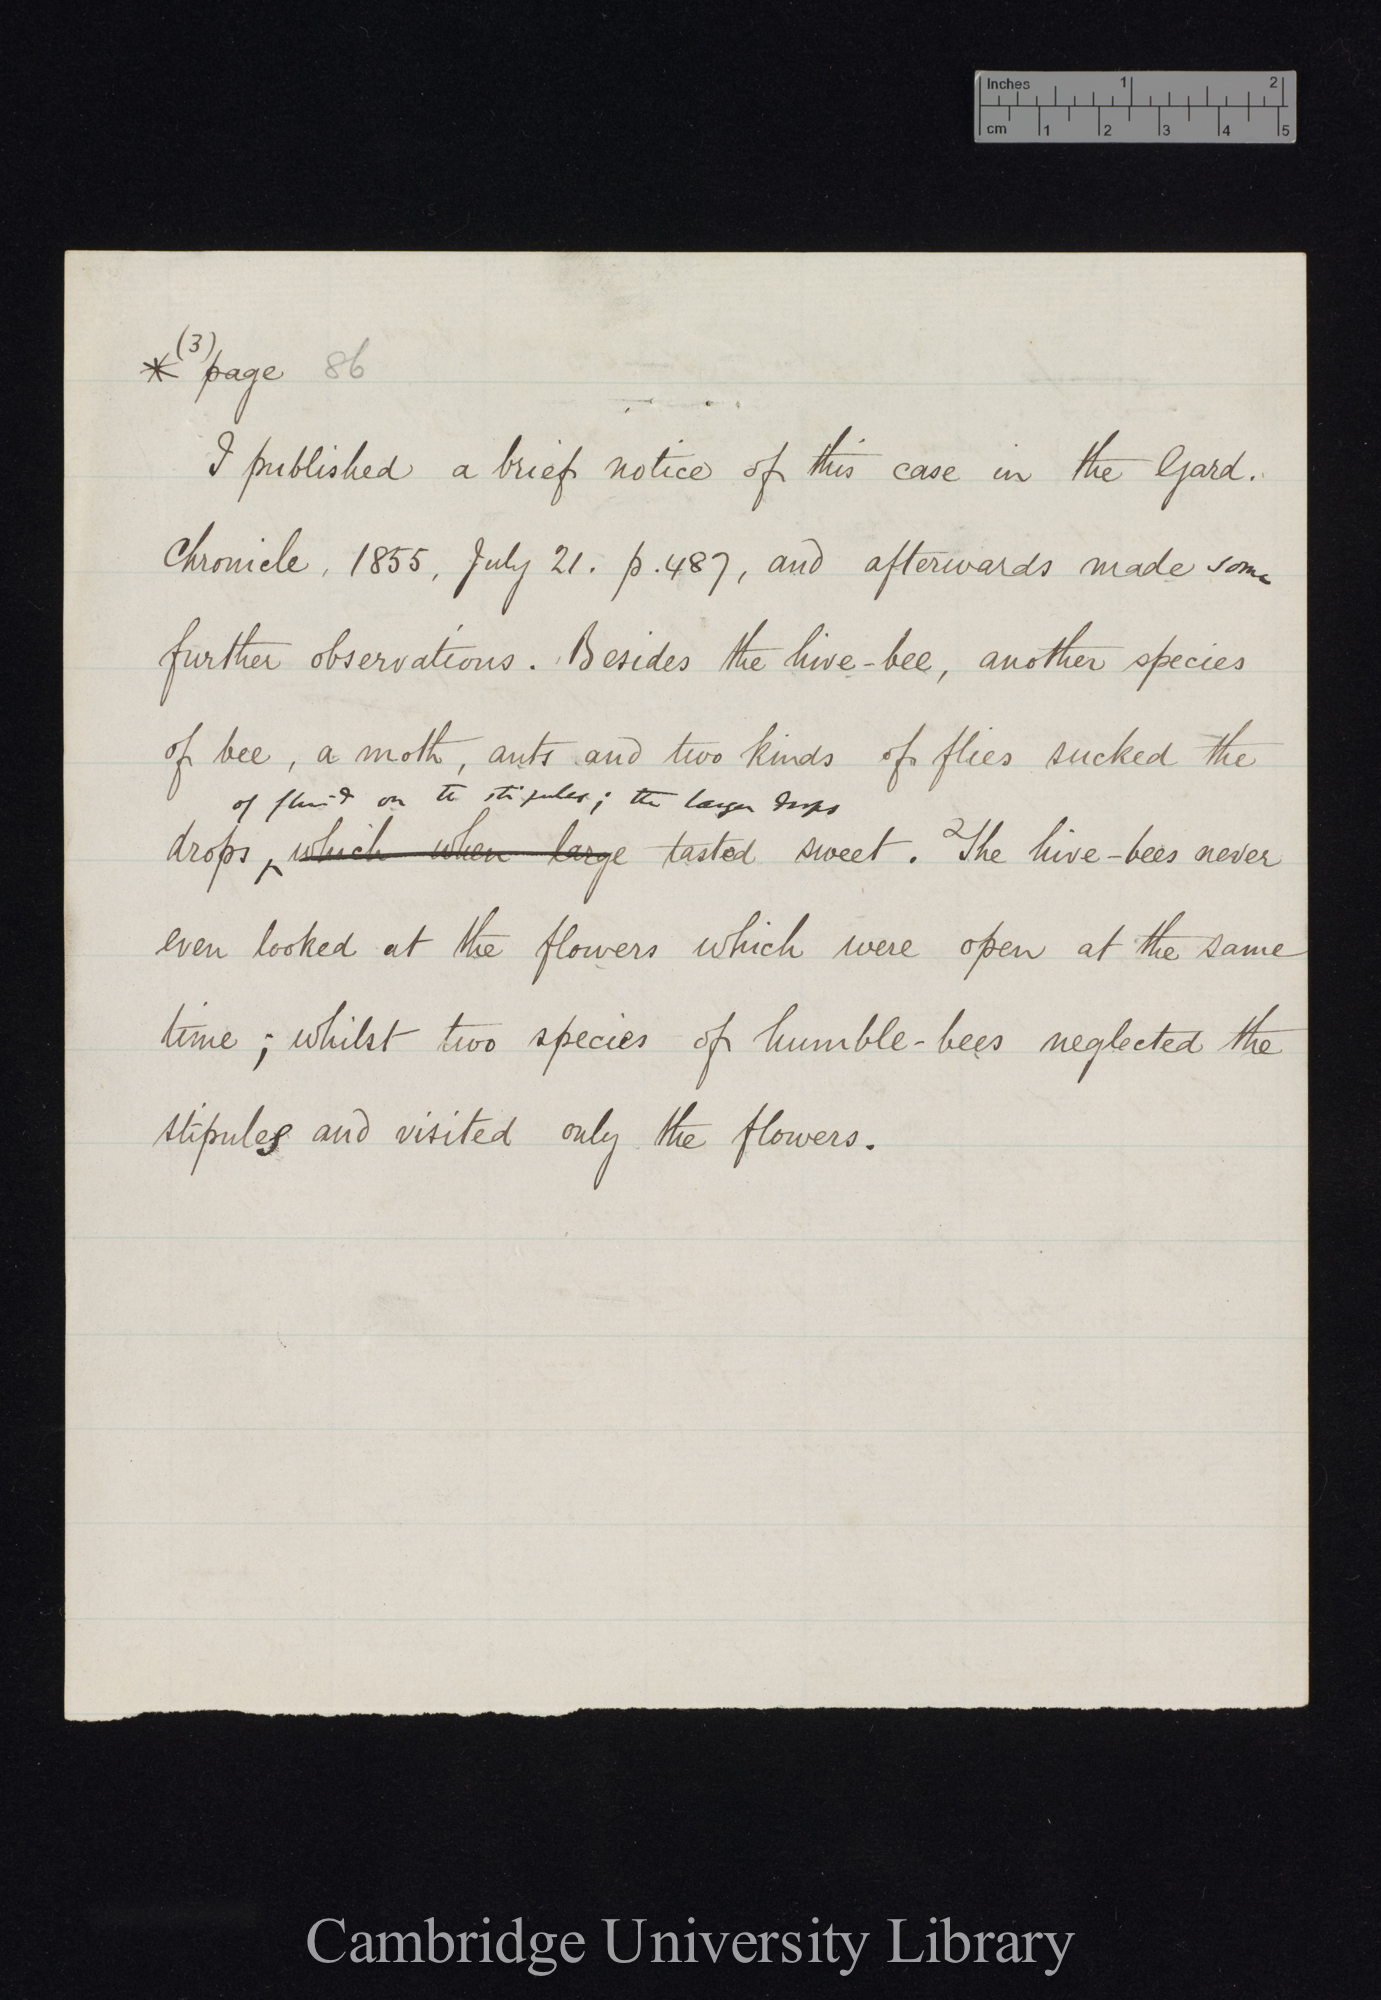 Inches 1 2
cm 1 2 3 4 5
(3)
* page 86
I published a brief notice of this case in the Gard.
Chronicle, 1855, July 21. p. 487, and afterwards made some
further observations. Besides the hive-bee, another species
of bee, a moth, ants and two kinds of flies sucked the
of fluid on the stipules; the larger drops
drops, which when large tasted sweet. The hive-bees never
even looked at the flowers which were open at the same
time; whilst two species of humble-bees neglected the
stipules and visited only the flowers.
Cambridge University Library